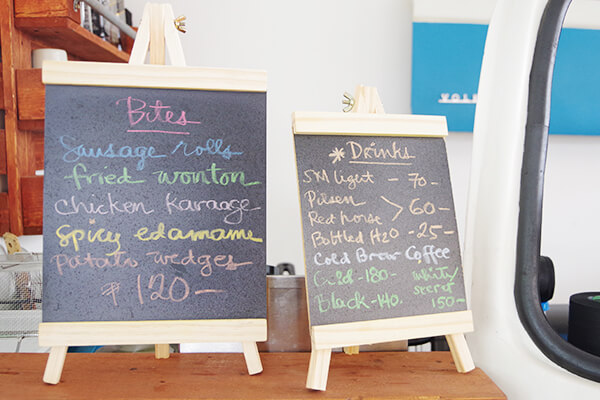 Bites
Sausage rolls
fried wonton
chicken karaage
spicy edamame
potato wedges
₱ 120 -
* Drinks
SM light - 70 -
Pilsen
Red horse > 60 -
Bottled H2O - 25 -
Cold Brew Coffee
-180-
Black - 140.
secret
150 -